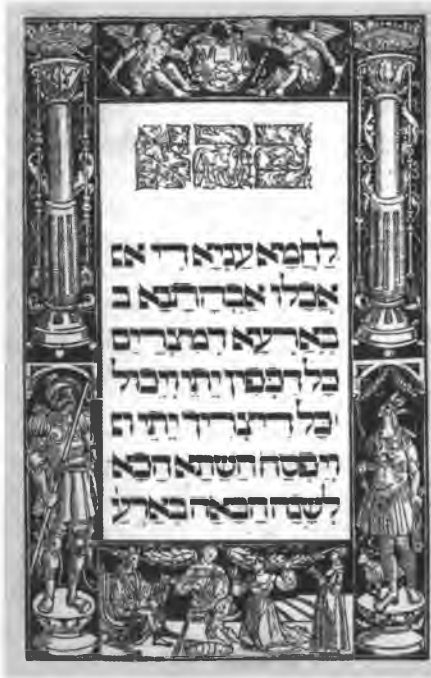 כהא
לַחְמָא עַנְיָא דִי אכ
אֲכַלוּ אַבְהָתַנָא ב
בְּאַרְעָא דְמִצְרַיִם
כָּל דִכְפִין יֵתֵי וְיֵכוֹל
כָּל דִיצְרִיךְ יֵתֵי
וְיִפְסַח הָשַׁתָּא הָכָא
לְשָׁנָה הַבָּאָה בְּאַרְעָ